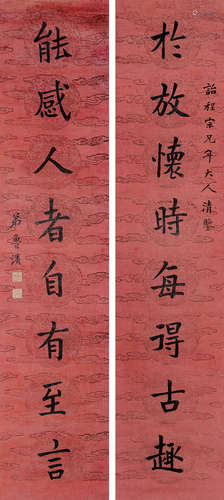 於放懷時每得古趣
詒程宗兄年大人清鑒
能感人者自有至言
弟魯濱